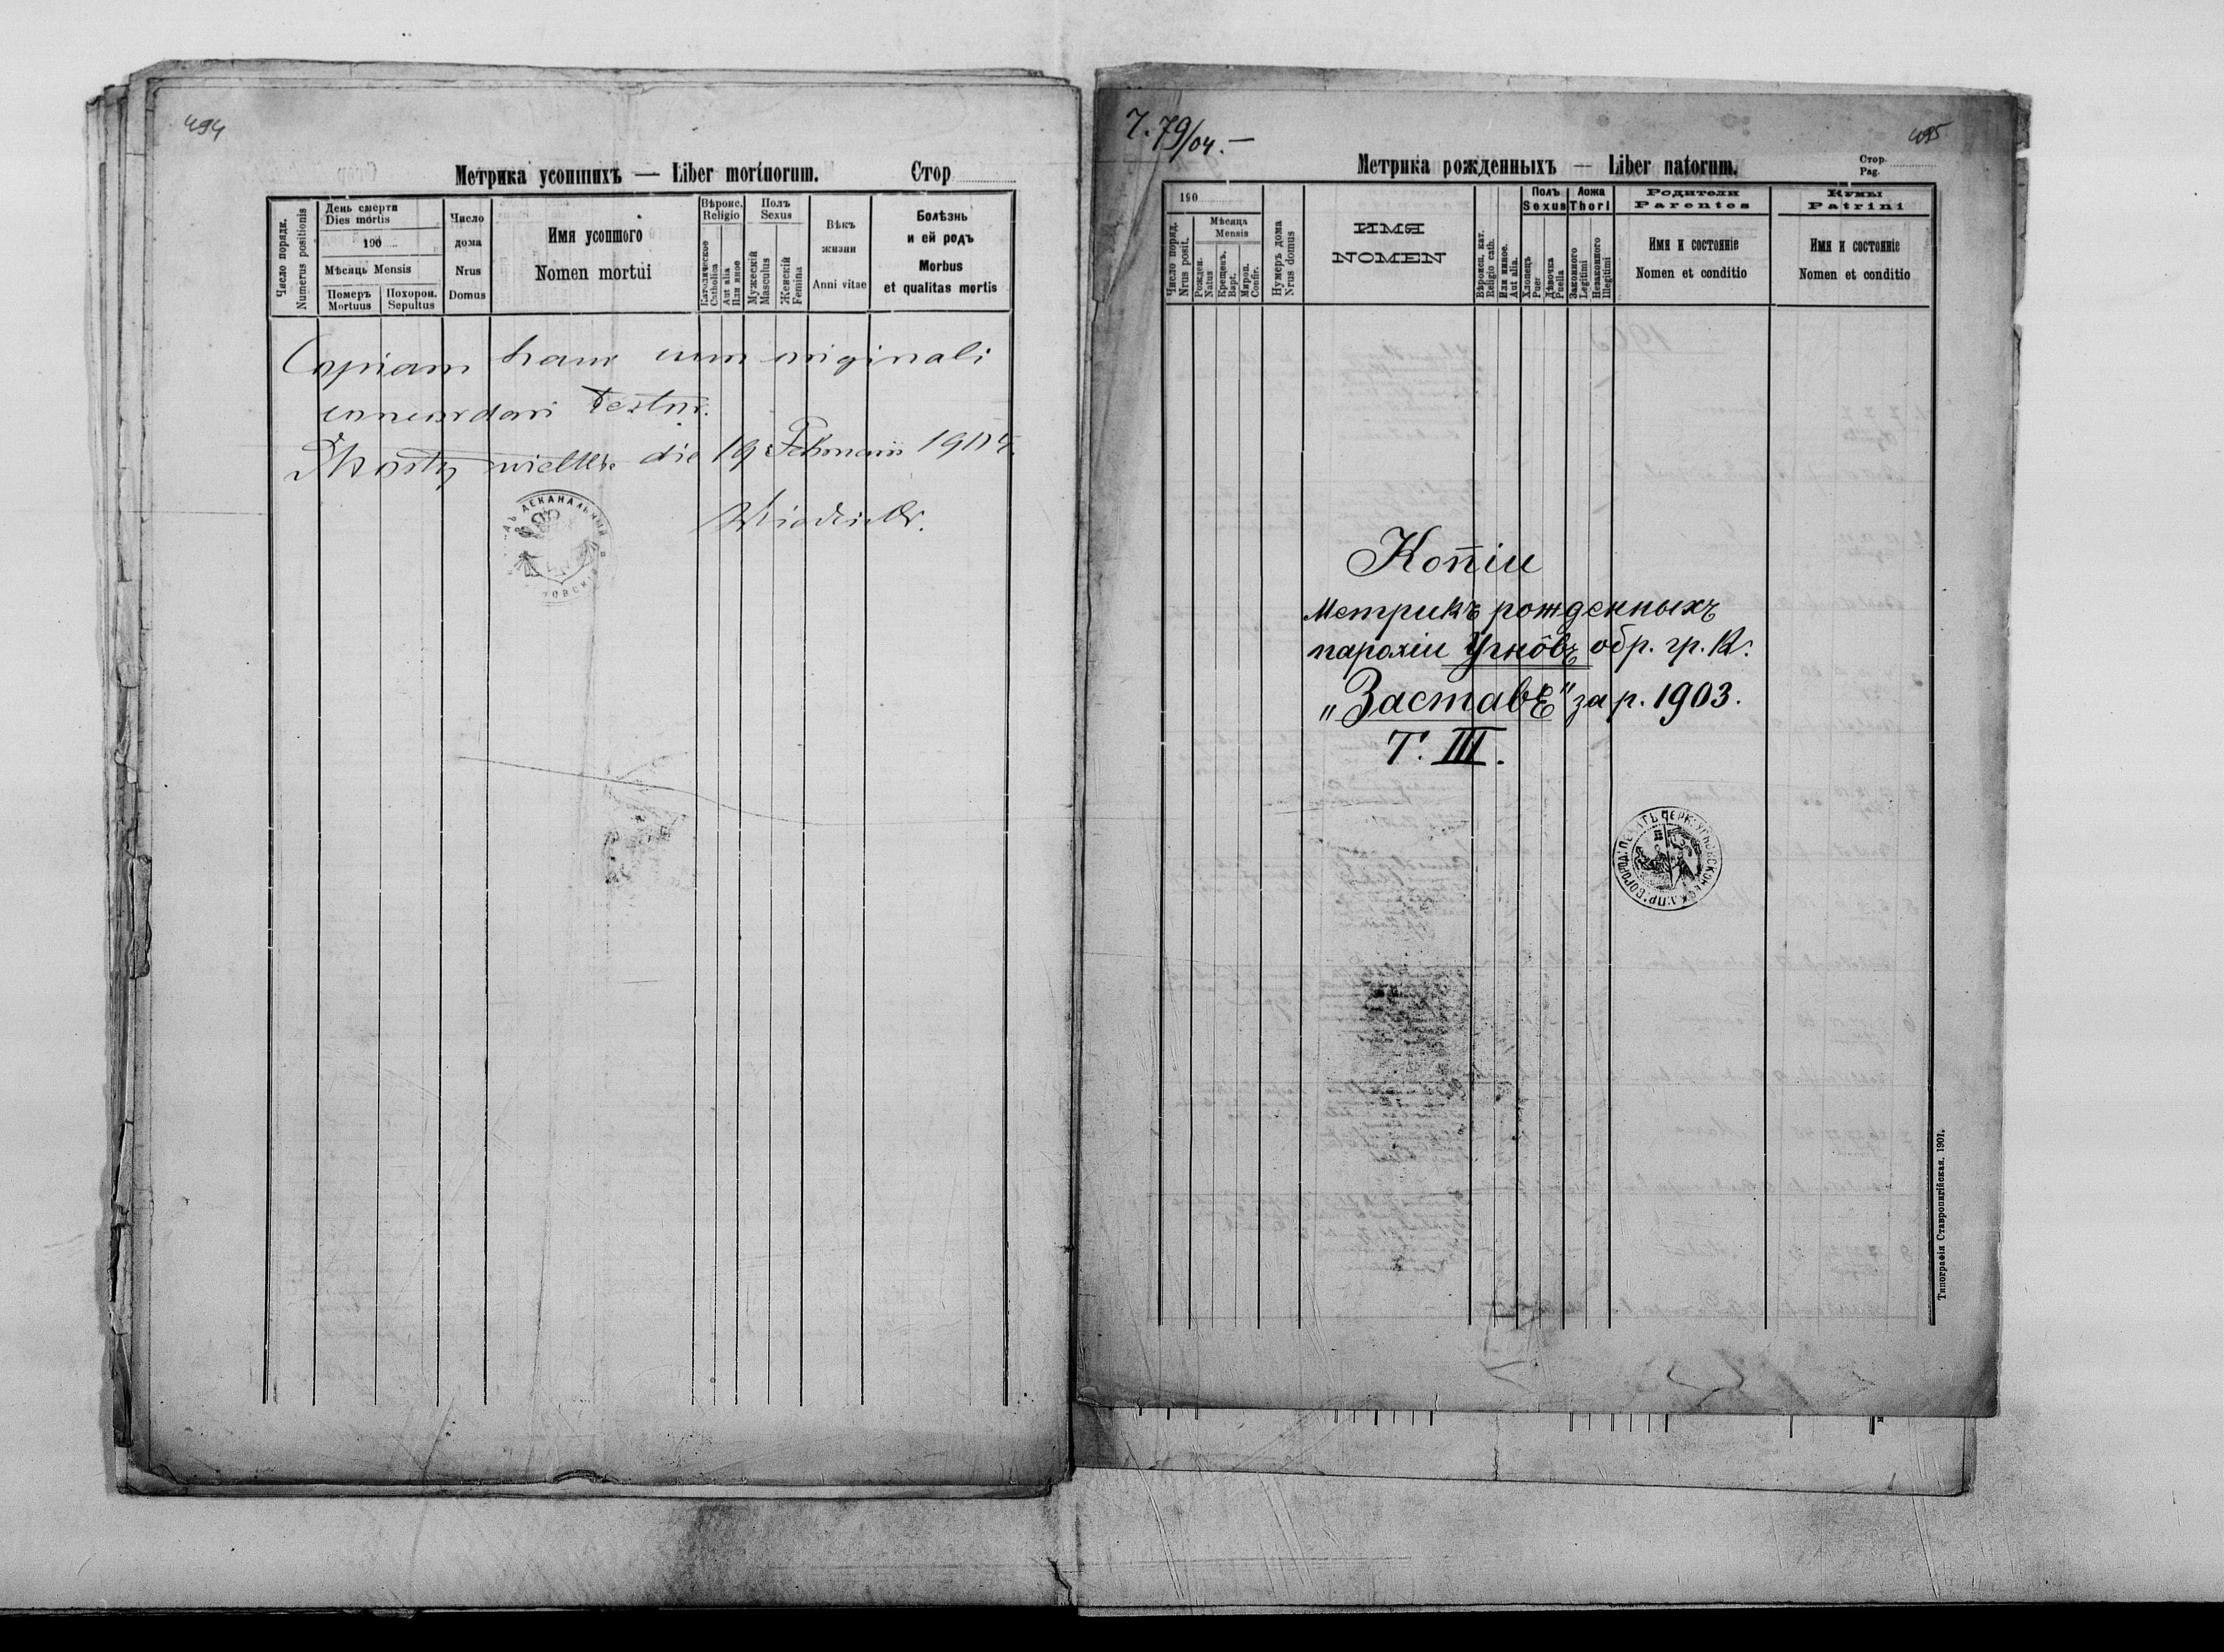 494
Метрика усопшихъ — Liber mortuorum.
Стор
Число порядк.
Numerus positionis
День смерти
Dies mortis
190
Мѣсяць Mensis
Померъ
Mortuus
Похорон.
Sepultus
Число
дома
Nrus
Domus
Имя усопшого
Nomen mortui
Вѣроис.
Religio
Католическое
Catholica
Aut alia
Или иное
Полъ
Sexus
Мужескій
Masculus
Женскій
Femina
Вѣкъ
жизни
Anni vitae
Болѣзнь
и ей родъ
Morbus
et qualitas mortis
Copiam hanc cum originali
concordari testor.
die 19 Februarii 1904.
ДЕКАНАЛЬНЫЙ
Ч. 79/04. —
495
Метрика рожденныхъ — Liber natorum.
Стор.
Pag.
Число поряд.
Nrus posit.
190
Мѣсяца
Mensis
Рожден.
Natus
Крещен.
Bapt.
Миров.
Confir.
Нумеръ дома
Nrus domus
ИМЯ
NOMEN
Вѣроисп. кат.
Religio cath.
Или иное.
Aut alia.
Полъ
Sexus
Хлопець
Puer
Дѣвочка
Puella
Ложа
Thori
Законного
Legitimi
Незаконного
Illegitimi
Родители
Parentes
Имя и состояніе
Nomen et conditio
Кумы
Patrini
Имя и состояніе
Nomen et conditio
Копіи
Метрикъ рожденныхъ
парохіи Угнôвъ обр. гр. к.
„Заставѣ" за р. 1903.
Т. III.
Типографія Ставропигійская. 1901.